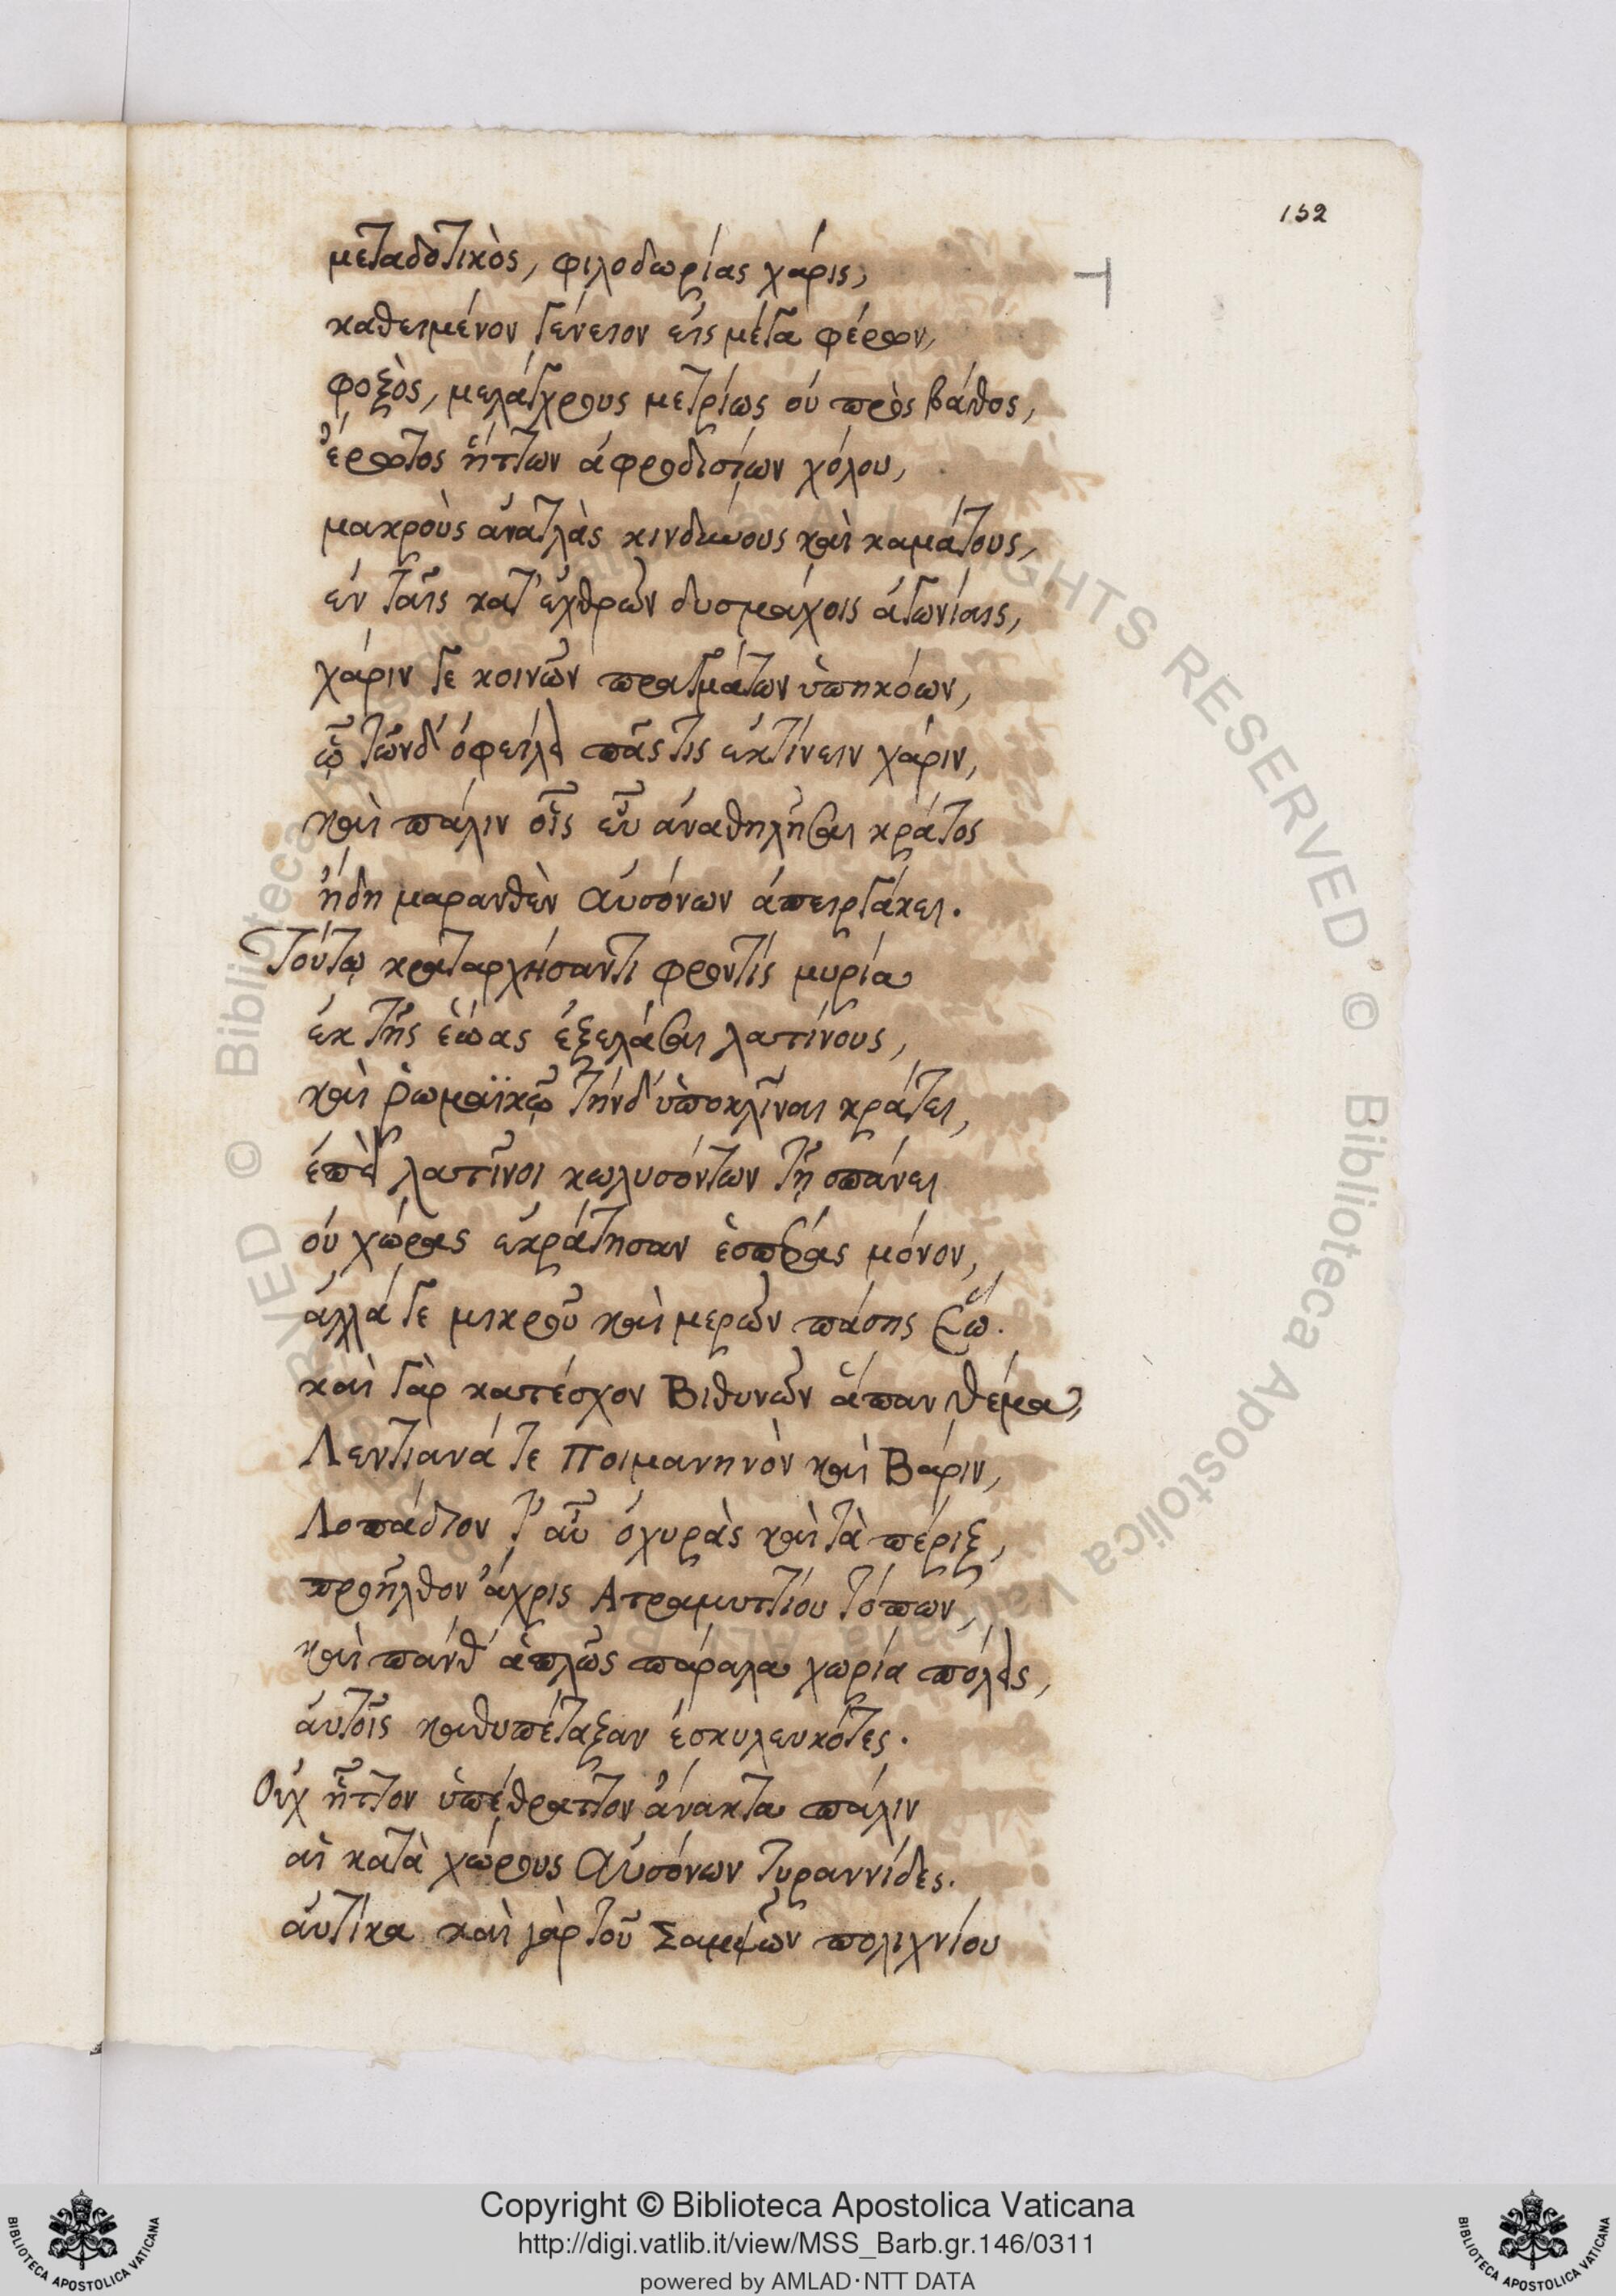 152
μεταδοτικὸς, φιλοδωρίας χάρις,
καθειμένον γένειον εἰς μέγα φέρων,
φοξὸς, μελάγχρους μετρίως οὐ πρὸς βάθος,
ἔρωτος ἥττων ἀφροδισίων χόλου,
μακροὺς ἀνατλὰς κινδύνους καὶ καμάτους,
ἐν ταῖς κατ' ἐχθρῶν δυσμάχοις ἀγωνίαις,
χάριν γε κοινῶν πραγμάτων ὑπηκόων,
ᾧ τῶνδ' ὀφείλει πᾶς τις ἐκτίνειν χάριν,
καὶ πάλιν οἷς εὖ ἀναθηλῆσαι κράτος
ἤδη μαρανθὲν Αὐσόνων ἀπειργάκει.
Τούτῳ καταρχήσαντι φροντὶς μυρία
ἐκ τῆς ἑῴας ἐξελάσαι λατίνους,
καὶ ῥωμαϊκῷ τήνδ' ὑποκλῖναι κράτει,
ἐπεὶ λατῖνοι κωλυσόντων τῇ σπάνει
οὐ χώρας ἐκράτησαν ἑσπέρας μόνον,
ἀλλά γε μικροῦ καὶ μερῶν πάσης ἕω.
καὶ γὰρ κατέσχον Βιθυνῶν ἅπαν θέμα,
Λεντιανά τε Ποιμανηνὸν καὶ Βάριν,
Λοπάδιον τ' αὖ ὀχυρὰς καὶ τὰ πέριξ,
προῆλθον ἄχρις Ατραμυττίου τόπων,
καὶ πάνθ' ἁπλῶς πάραλα χωρία πόλεις,
αὐτοῖς καθυπέταξαν ἐσκυλευκότες.
Οὐχ ἧττον ὑπέθραττον ἄνακτα πάλιν
αἱ κατὰ χώρους Αὐσόνων τυραννίδες.
αὐτίκα καὶ γὰρ τοῦ Σαμψὼν πολιχνίου
Copyright © Biblioteca Apostolica Vaticana
http://digi.vatlib.it/view/MSS_Barb.gr.146/0311
powered by AMLAD·NTT DATA